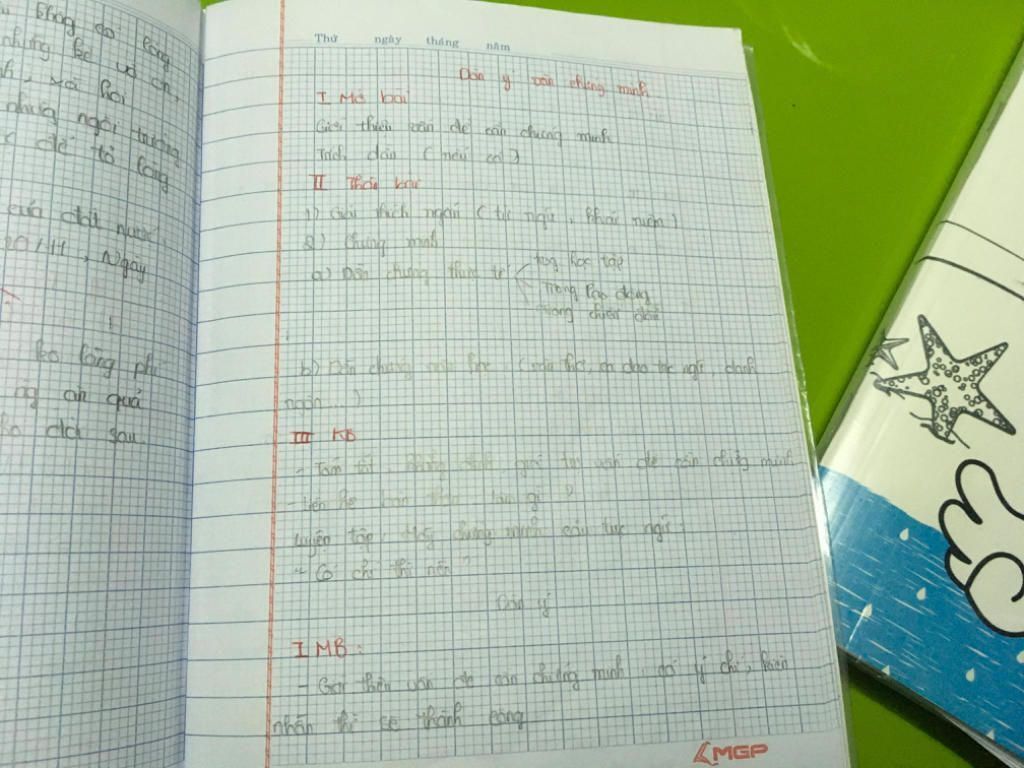 không do lòng
những kẻ vô ơn,
xã hội
những ngôi trường
để tỏ lòng
của đất nước.
20/11, Ngày
lòng
ăn quả
đời sau.
Thứ ngày tháng năm
Dàn ý văn chứng minh
I Mở bài
Giới thiệu vấn đề cần chứng minh
Trích dẫn (nếu có)
II Thân bài
1) Giải thích ngắn (tục ngữ, khái niệm)
2) Chứng minh
a) Dẫn chứng thực tế
trong học tập
Trong lao động
Trong chiến đấu
b) Dẫn chứng văn học (văn thơ, ca dao tục ngữ, danh
ngôn...)
III KB
- Tóm tắt, khẳng định giá trị vấn đề cần chứng minh
- Liên hệ bản thân làm gì?
Luyện tập: Hãy chứng minh câu tục ngữ:
"Có chí thì nên"
Dàn ý
I MB:
- Giới thiệu vấn đề cần chứng minh: có ý chí, kiên
nhẫn thì sẽ thành công
MGP